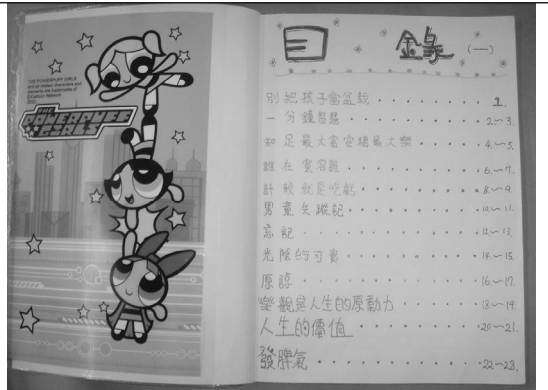 THE POWERPUFF GIRLS
and all related characters and
elements are trademarks of
©Cartoon Network
THE
POWERPUFF
GIRLS
目 錄 (一)
別把孩子當盆栽 1.
一分鐘智慧 2.~3.
知足最大富安穩最大樂 4.~5.
誰在寬容誰 6.~7.
計較就是吃虧 8.~9.
男童失蹤記 10.~11.
忘記 12.~13.
光陰的可貴 14.~15.
原諒 16.~17.
樂觀是人生的原動力 18.~19.
人生的價值 20~21.
發脾氣 22~23.